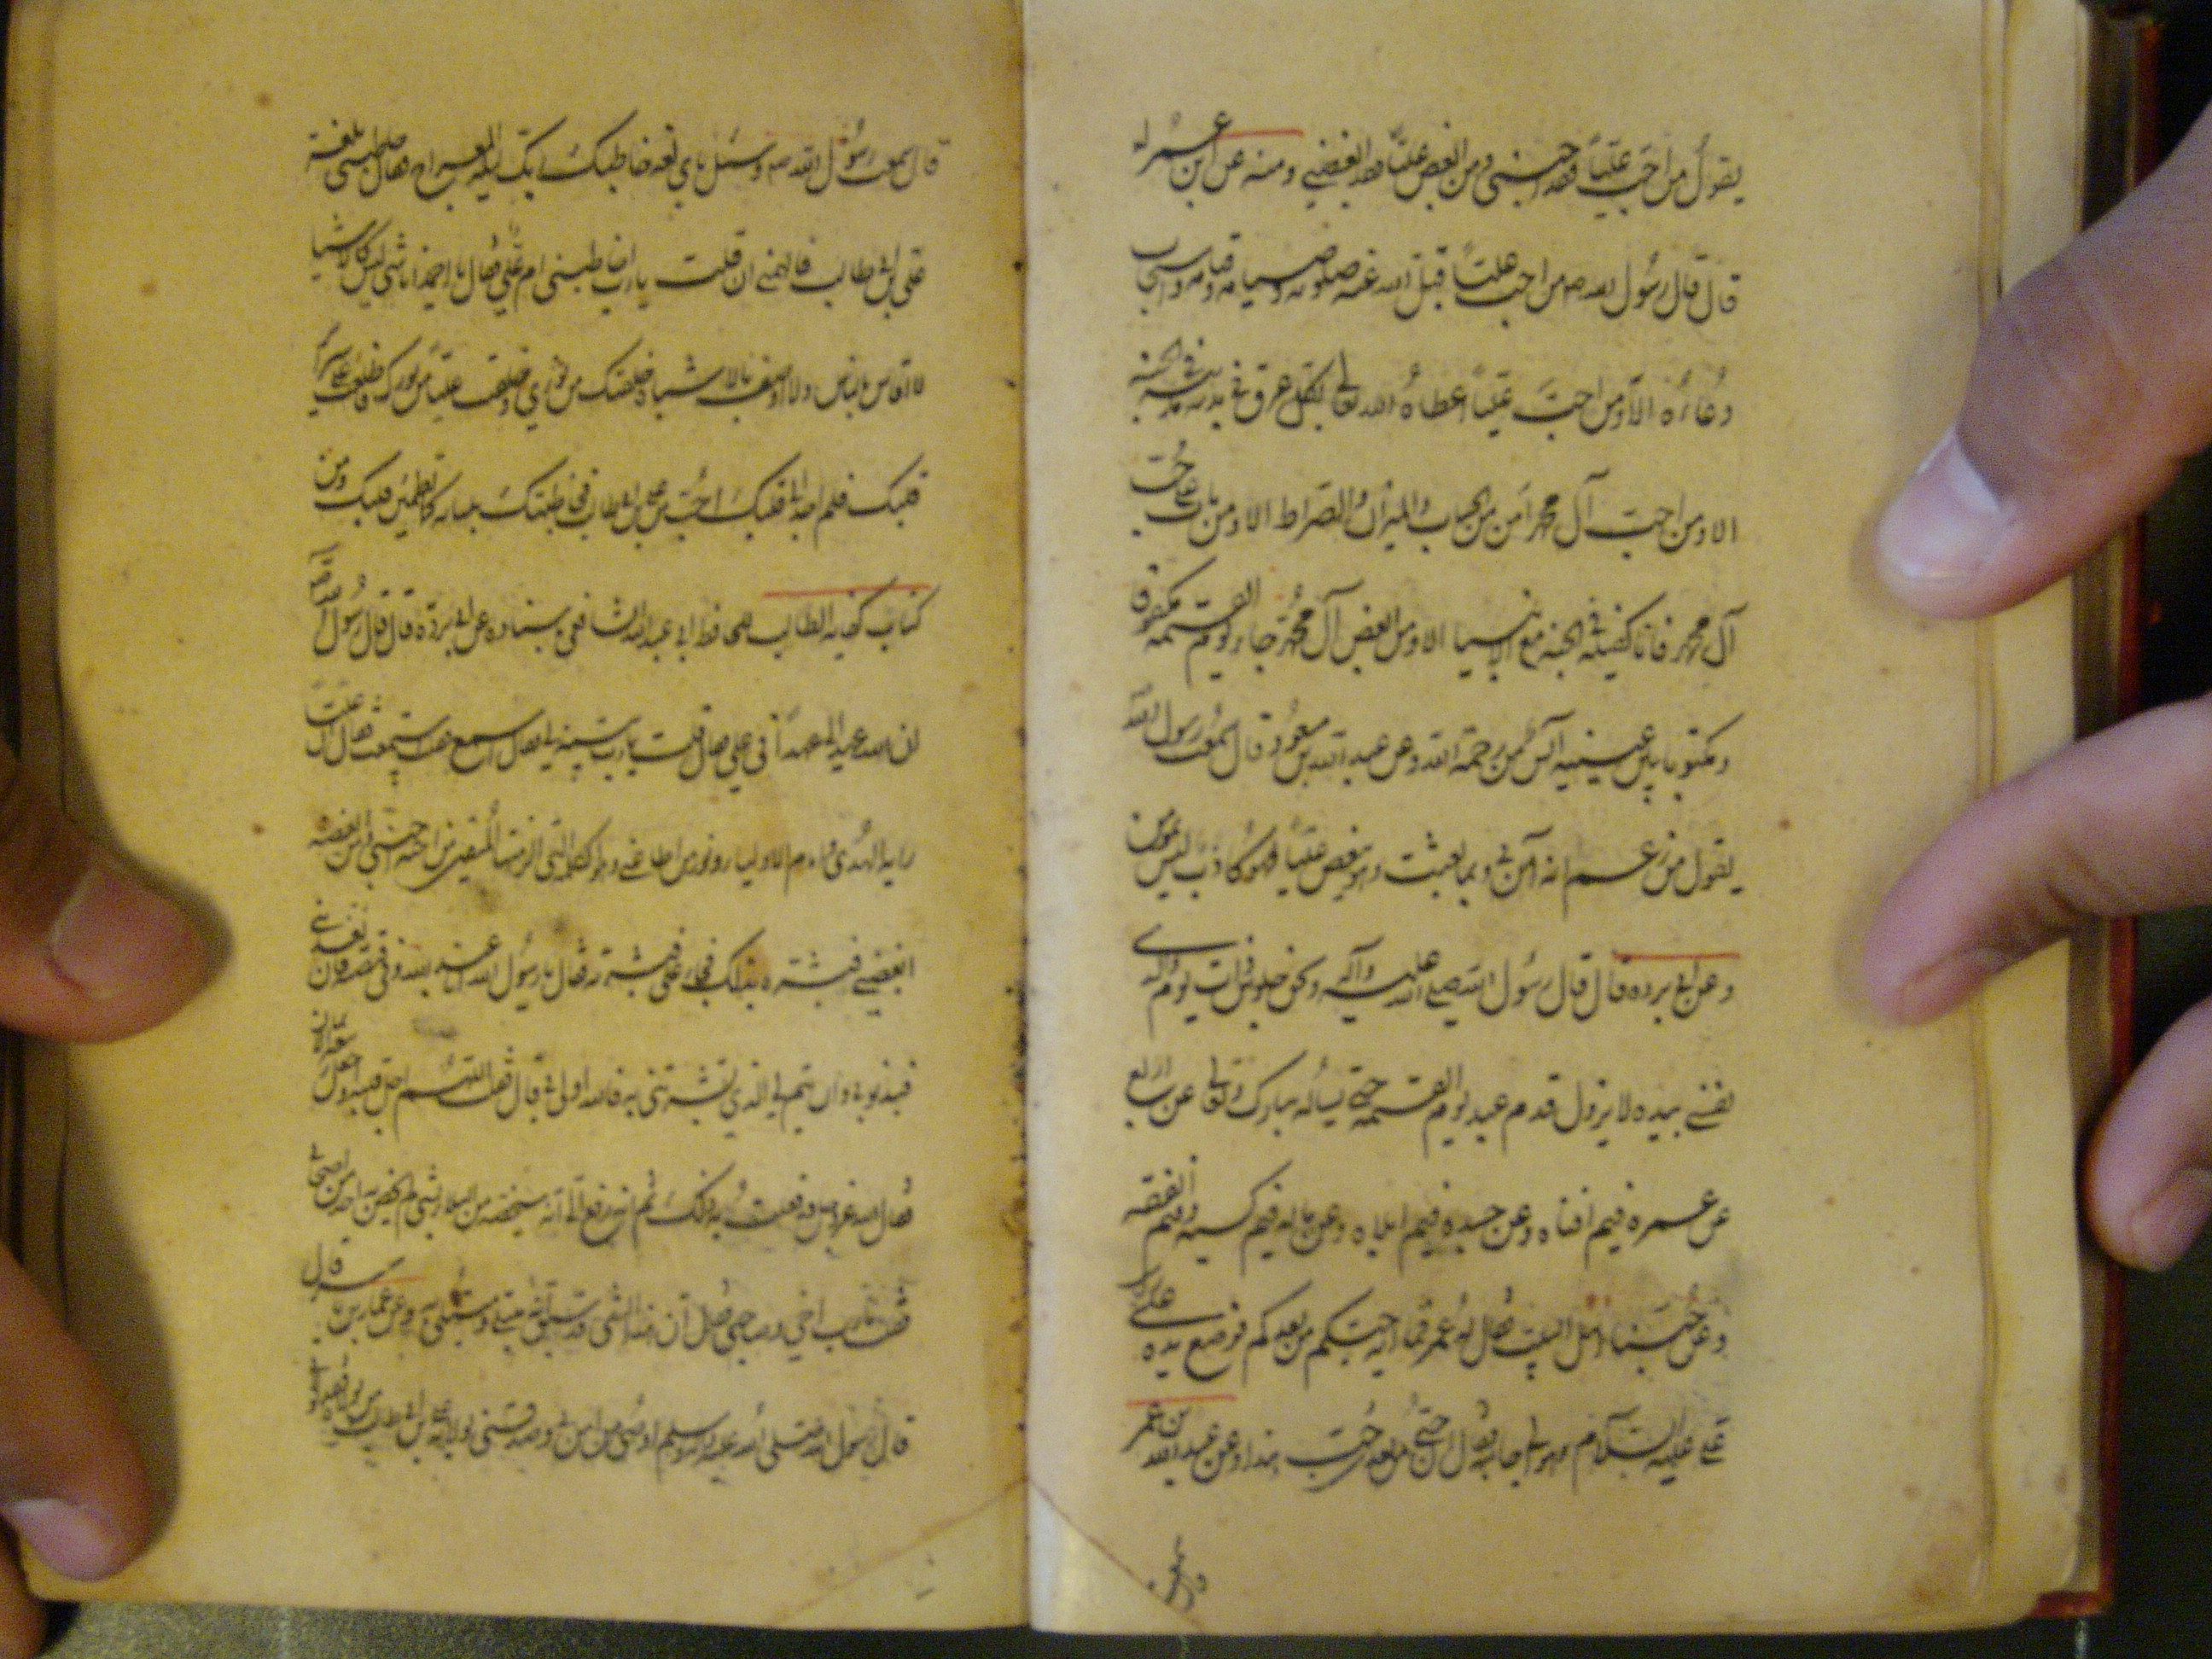 يقول من احب عليّاً فقد احبني ومن ابغض عليّاً فقد ابغضني ومنه عن ابن عمر
قال قال رسول الله ص من احب عليّاً قبل الله عنه صلوته وصيامه وقيامه واستجاب
دعاؤه الا ومن احبّ عليّاً اعطاه الله تعالى بكل عرق في بدنه مدينة في الجنة
الا ومن احبّ آل محمد امن من الحساب والميزان والصراط الا ومن مات على حُبّ
آل محمد فانا كفيله في الجنة مع الانبياء الا ومن ابغض آل محمّد جاء يوم القيمة
ومكتوبا بين عينيه آيس من رحمة الله وعن عبد الله بن مسعود قال سمعت رسول الله
يقول من زعم انه آمن بي وبما بعثت وهو يبغض عليّاً فهو كاذب ليس بمؤمن
وعن ابي برده قال قال رسول الله صلى الله عليه وآله ونحن جلوس ذات يوم والذي
نفسي بيده لا يزول قدم عبد يوم القيمة حتى يسأله تبارك وتعالى عن اربع
عن عمره فيم افناه وعن جسده فيم ابلاه وعن ماله فيم كسبه وفيم انفقه
وعن حُبّنا اهل البيت فقال له عمر فما آية حبّكم من بعدكم فوضع يده على
علي عليه السلام وهو الى جانبه فقال ان حبّي من بعدي حُبّ هذا وعن عبد الله بن عمر
قال سمعت رسول الله ص وسئل باي لغة خاطبك ربك ليلة المعراج فقال خاطبني بلغة
علي بن ابي طالب فالهمني ان قلت يا رب اخاطبتني ام علي فقال يا احمد انا شي ليس كالاشياء
لا اقاس بالناس ولا اوصف بالاشياء خلقتك من نوري وخلقت عليّاً من نورك فاطلعت على سراير
قلبك فلم اجد الى قلبك احبّ من علي بن ابي طالب فخاطبتك بلسانه كيما تطمئن قلبك ومن
كتاب كفاية الطالب للحافظ ابي عبد الله الشافعي باسناده عن ابي برزه قال قال رسول الله
ان الله عهد الي عهداً في علي فقال قلت يا رب بينه لي فقال اسمع فقلت سمعت فقال ان عليّا
راية الهدى وامام الاوليا ونور من اطاعني وهو الكلمة التي الزمتها المتقين من احبه احبني ومن ابغضه
ابغضني فبشره بذلك فجاء علي فبشرته فقال يا رسول الله انا عبد الله وفي قبضته فان يعذبني
فبذنوبي وان يتم لي الذي بشرتني به فالله اولى بي قال فقلت اللهم اجل قلبه واجعل
فقال الله عز وجل قد فعلت به ذلك ثم انه رفع الي انه سيخصه من البلاء بشي لم يخص به احدا من اصحابي
فقلت يا رب اخي وصاحبي فقال ان هذا الشي قد سبق انه مبتلى ومبتلى به وعن عمار بن ياسر قال
قال رسول الله صلى الله عليه وآله وسلم اوصي من آمن بي وصدقني بولاية علي بن ابي طالب